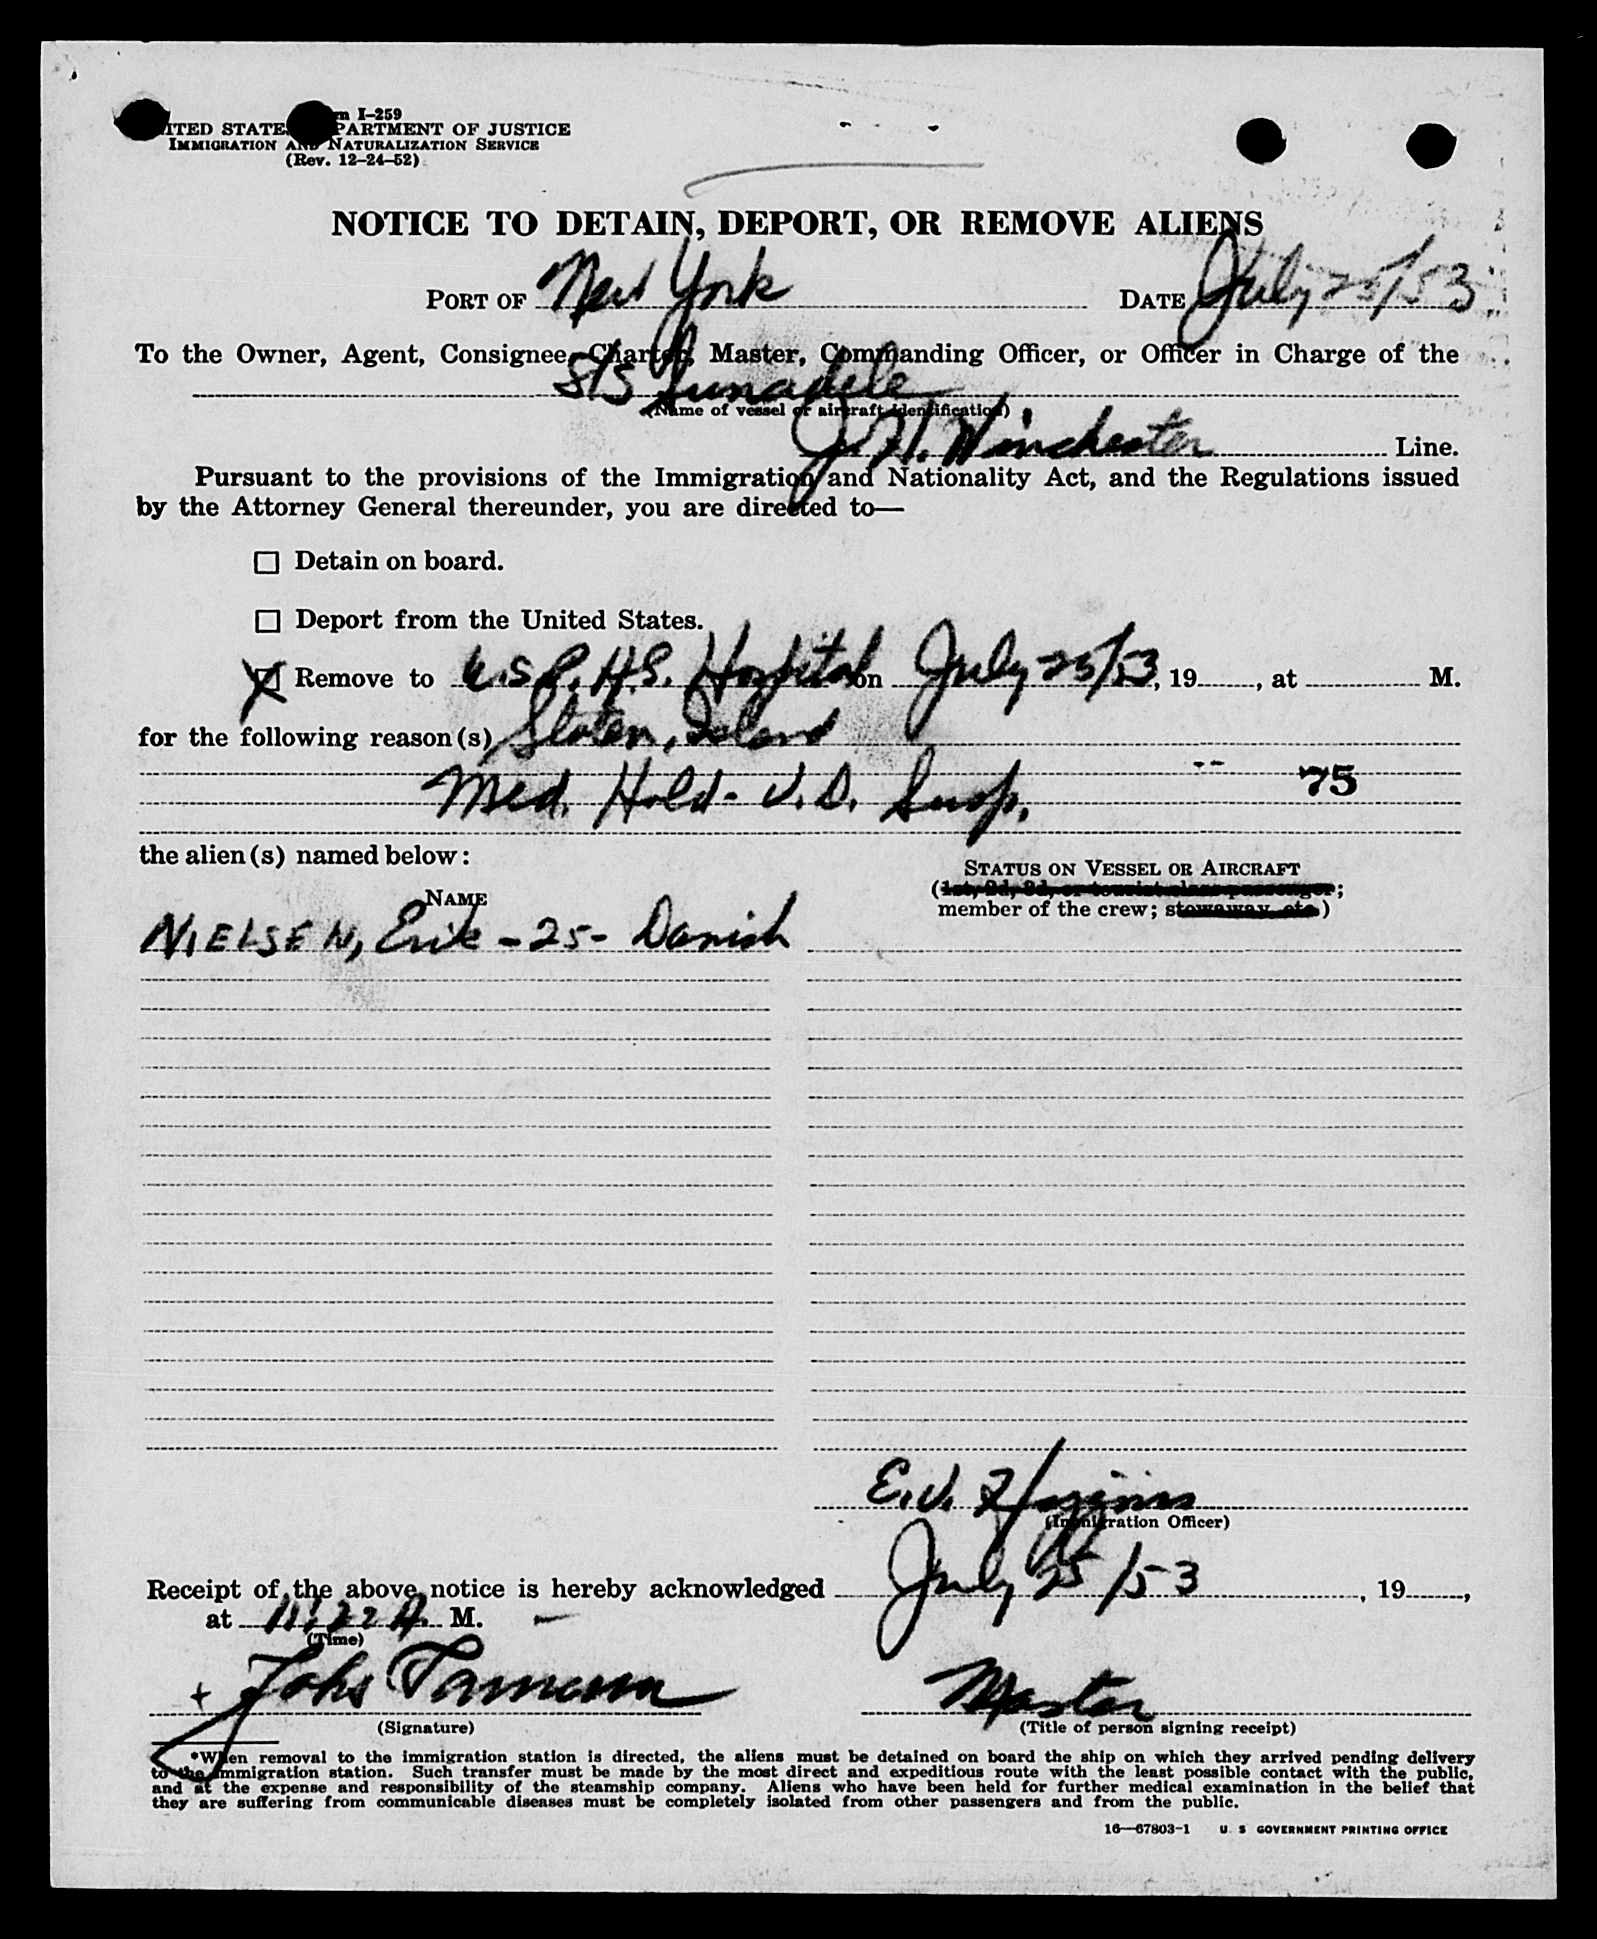 Form I-259
UNITED STATES DEPARTMENT OF JUSTICE
IMMIGRATION AND NATURALIZATION SERVICE
(Rev. 12-24-52)
NOTICE TO DETAIN, DEPORT, OR REMOVE ALIENS
PORT OF New York DATE July 25/53
To the Owner, Agent, Consignee, Charter, Master, Commanding Officer, or Officer in Charge of the
S/S Sunadele
(Name of vessel or aircraft identification)
J. H. Winchester Line.
Pursuant to the provisions of the Immigration and Nationality Act, and the Regulations issued
by the Attorney General thereunder, you are directed to—
Detain on board.
Deport from the United States.
X Remove to U.S.P.H.S. Hospital on July 25/53, 19, at M.
for the following reason(s) Staten, Island
75
Med. Hold - V.D. Susp.
the alien(s) named below:
STATUS ON VESSEL OR AIRCRAFT
(1st, 2d, 3d, or tourist class passenger;
NAME
member of the crew; stowaway, etc.)
NIELSEN, Erik - 25 - Danish
E.V. Higgins
(Immigration Officer)
Receipt of the above notice is hereby acknowledged July 25/53, 19,
at 11:22 A. M.
(Time)
+ Johs Master
(Signature) (Title of person signing receipt)
*When removal to the immigration station is directed, the aliens must be detained on board the ship on which they arrived pending delivery
to the immigration station. Such transfer must be made by the most direct and expeditious route with the least possible contact with the public,
and at the expense and responsibility of the steamship company. Aliens who have been held for further medical examination in the belief that
they are suffering from communicable diseases must be completely isolated from other passengers and from the public.
16—67803-1 U. S. GOVERNMENT PRINTING OFFICE